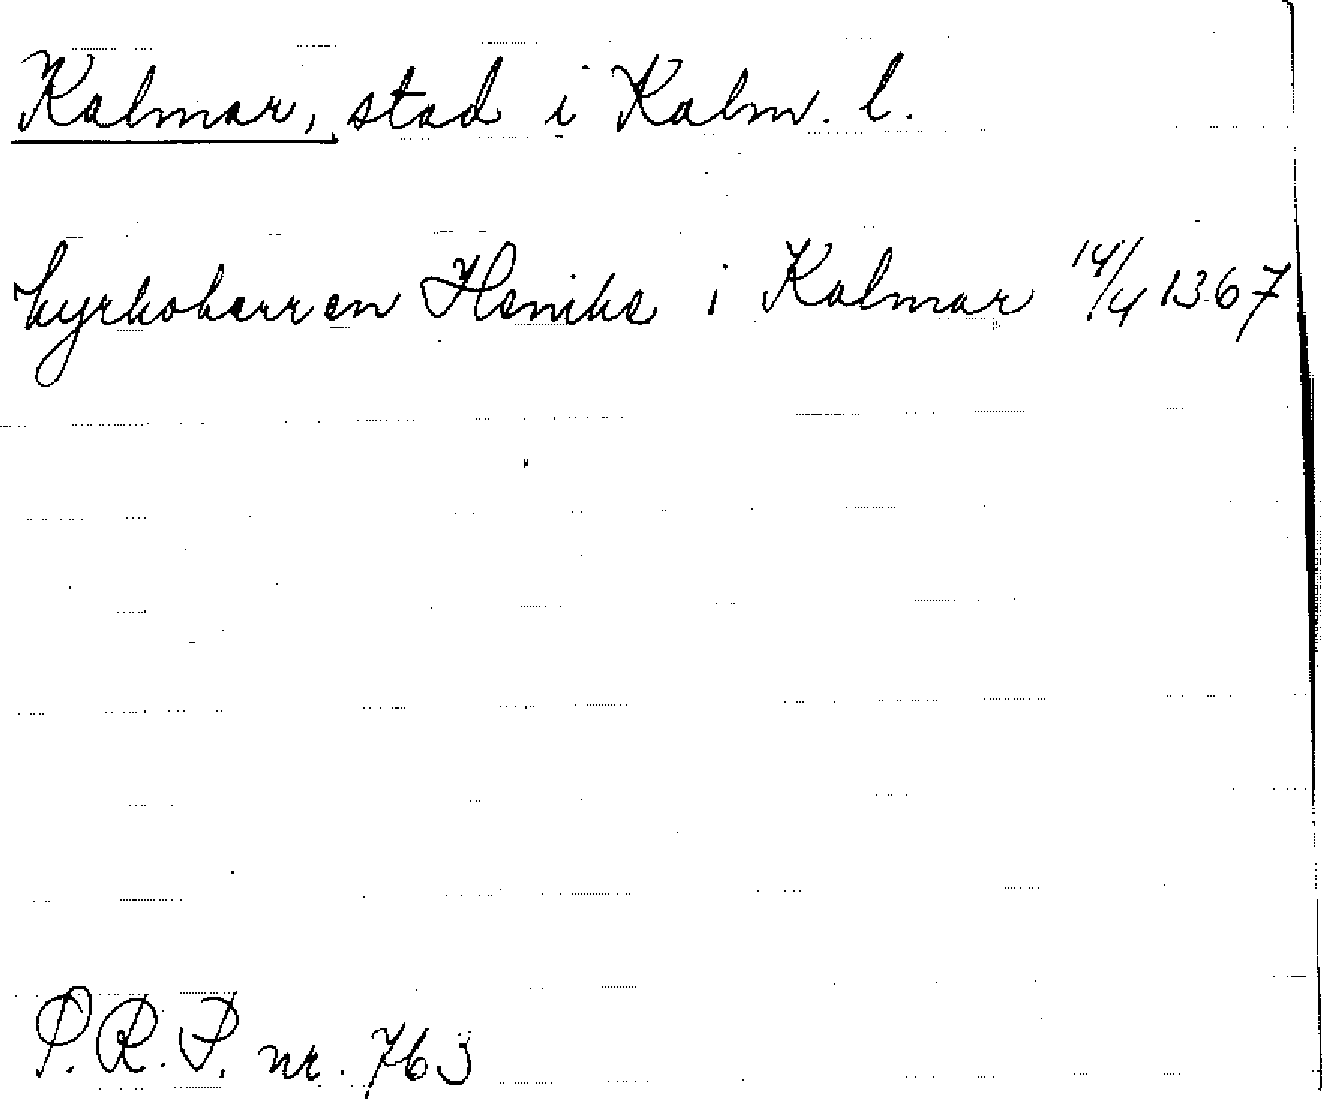 Kalmar, stad i Kalm. l.
kyrkoherren Henike i Kalmar 14/4 1367
P.R.P. nr. 763